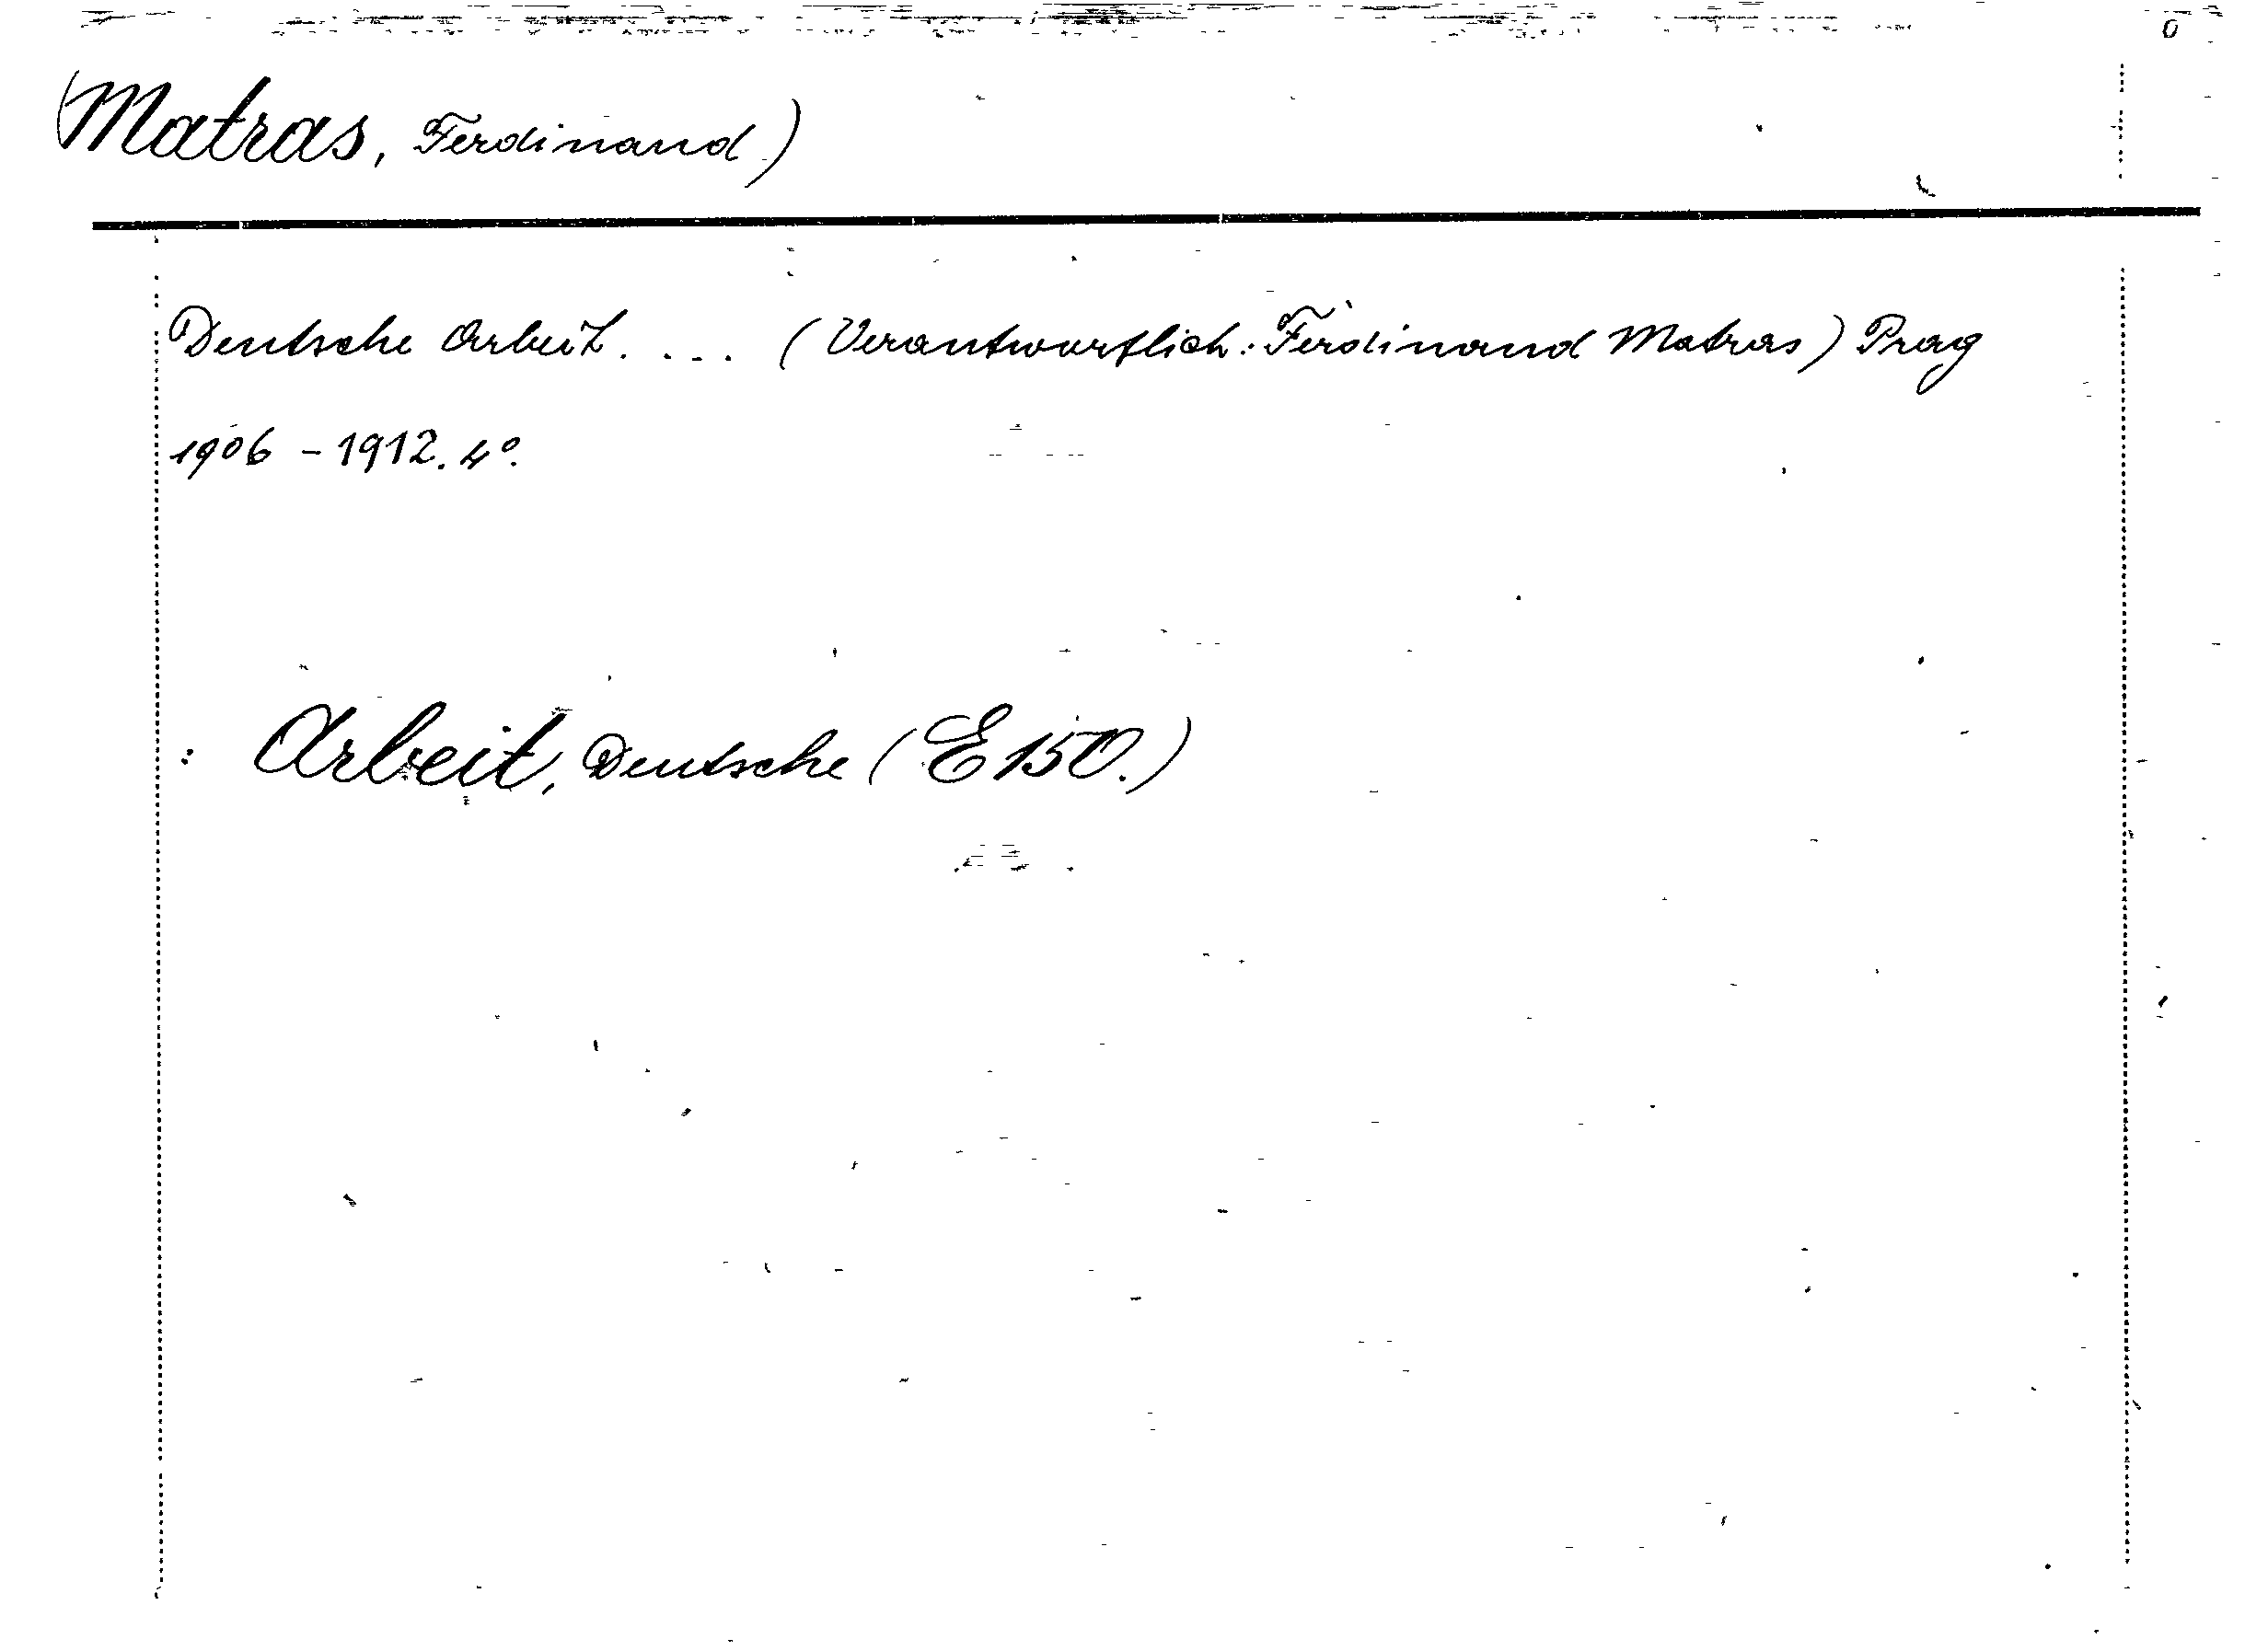 (Matras, Ferdinand)
Deutsche Arbeit. ... (Verantwortlich: Ferdinand Matras) Prag
1906 - 1912. 4°.
: Arbeit, Deutsche (E 150.)